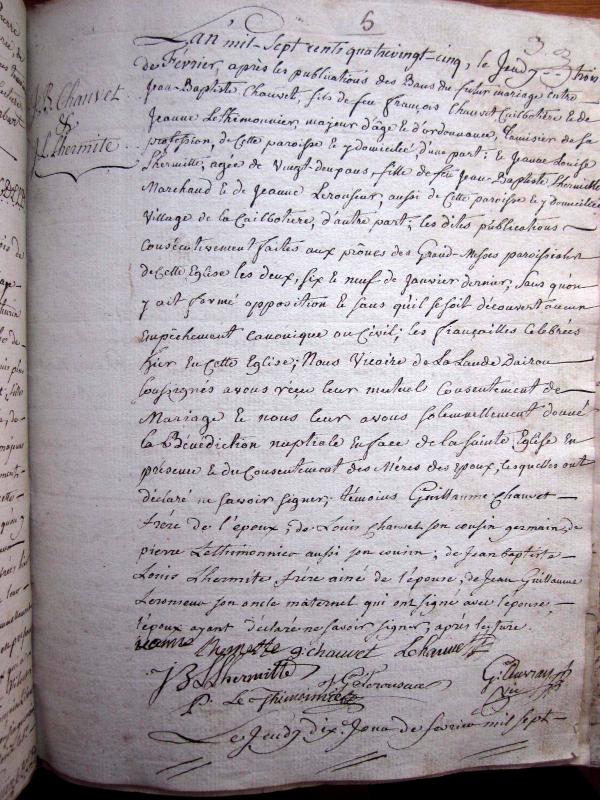 5
3
L'an mil-Sept cents quatrevingt-cinq, le Jeudy trois
de Fevrier, après les publications des Bans du futur mariage entre
Jean-Baptiste Chauvet, fils de feu François Chauvet Cailbotière & de
Jeanne Lethimonnier, majeur d'âge & d'ordonnance, Tamisier de sa
profession, de Cette paroisse & y domicilié, d'une part; & Jeanne Louise
Lhermitte, agée de Vingt-deux ans, fille de feu Jean-Baptiste Lhermitte
Marchand & de Jeanne Leronseur, aussi de Cette paroisse & y domiciliée
Village de la Cailbotiere, d'autre part; les dites publications
Consécutivement faites aux prônes des Grand-Messes paroissiales
de Cette Eglise les deux, six & neuf de Janvier dernier, sans qu'on
y ait formé opposition & sans qu'il se soit découvert aucun
Empêchement canonique ou Civil; les fiançailles Celebrées
hier en Cette Eglise; Nous Vicaire de La Lande Dairou
Soussignés avons reçu leur mutuel Consentement de
Mariage & nous leur avons solemnellement donné
la Bénédiction nuptiale en face de la sainte Eglise En
présence & du Consentement des Mères des Epoux, lesquelles ont
déclaré ne savoir signer; témoins Guillaume Chauvet
frere de l'époux; de Louis Chauvet son cousin germain, de
pierre Lethimonnier aussi son cousin; de Jean baptiste
Louis Lhermite frère ainé de l'épouse, de Jean Guillaume
Leronseur son oncle maternel qui ont signé avec l'épouse,
l'époux ayant déclaré ne savoir signer, après lecture.
g. chauvet L Chauvet
JB L Lhermitte
P. Le Thimonnier
Le Jeudy dix. de fevrier mil sept
J. B. Chauvet
&
J. L. Lhermite